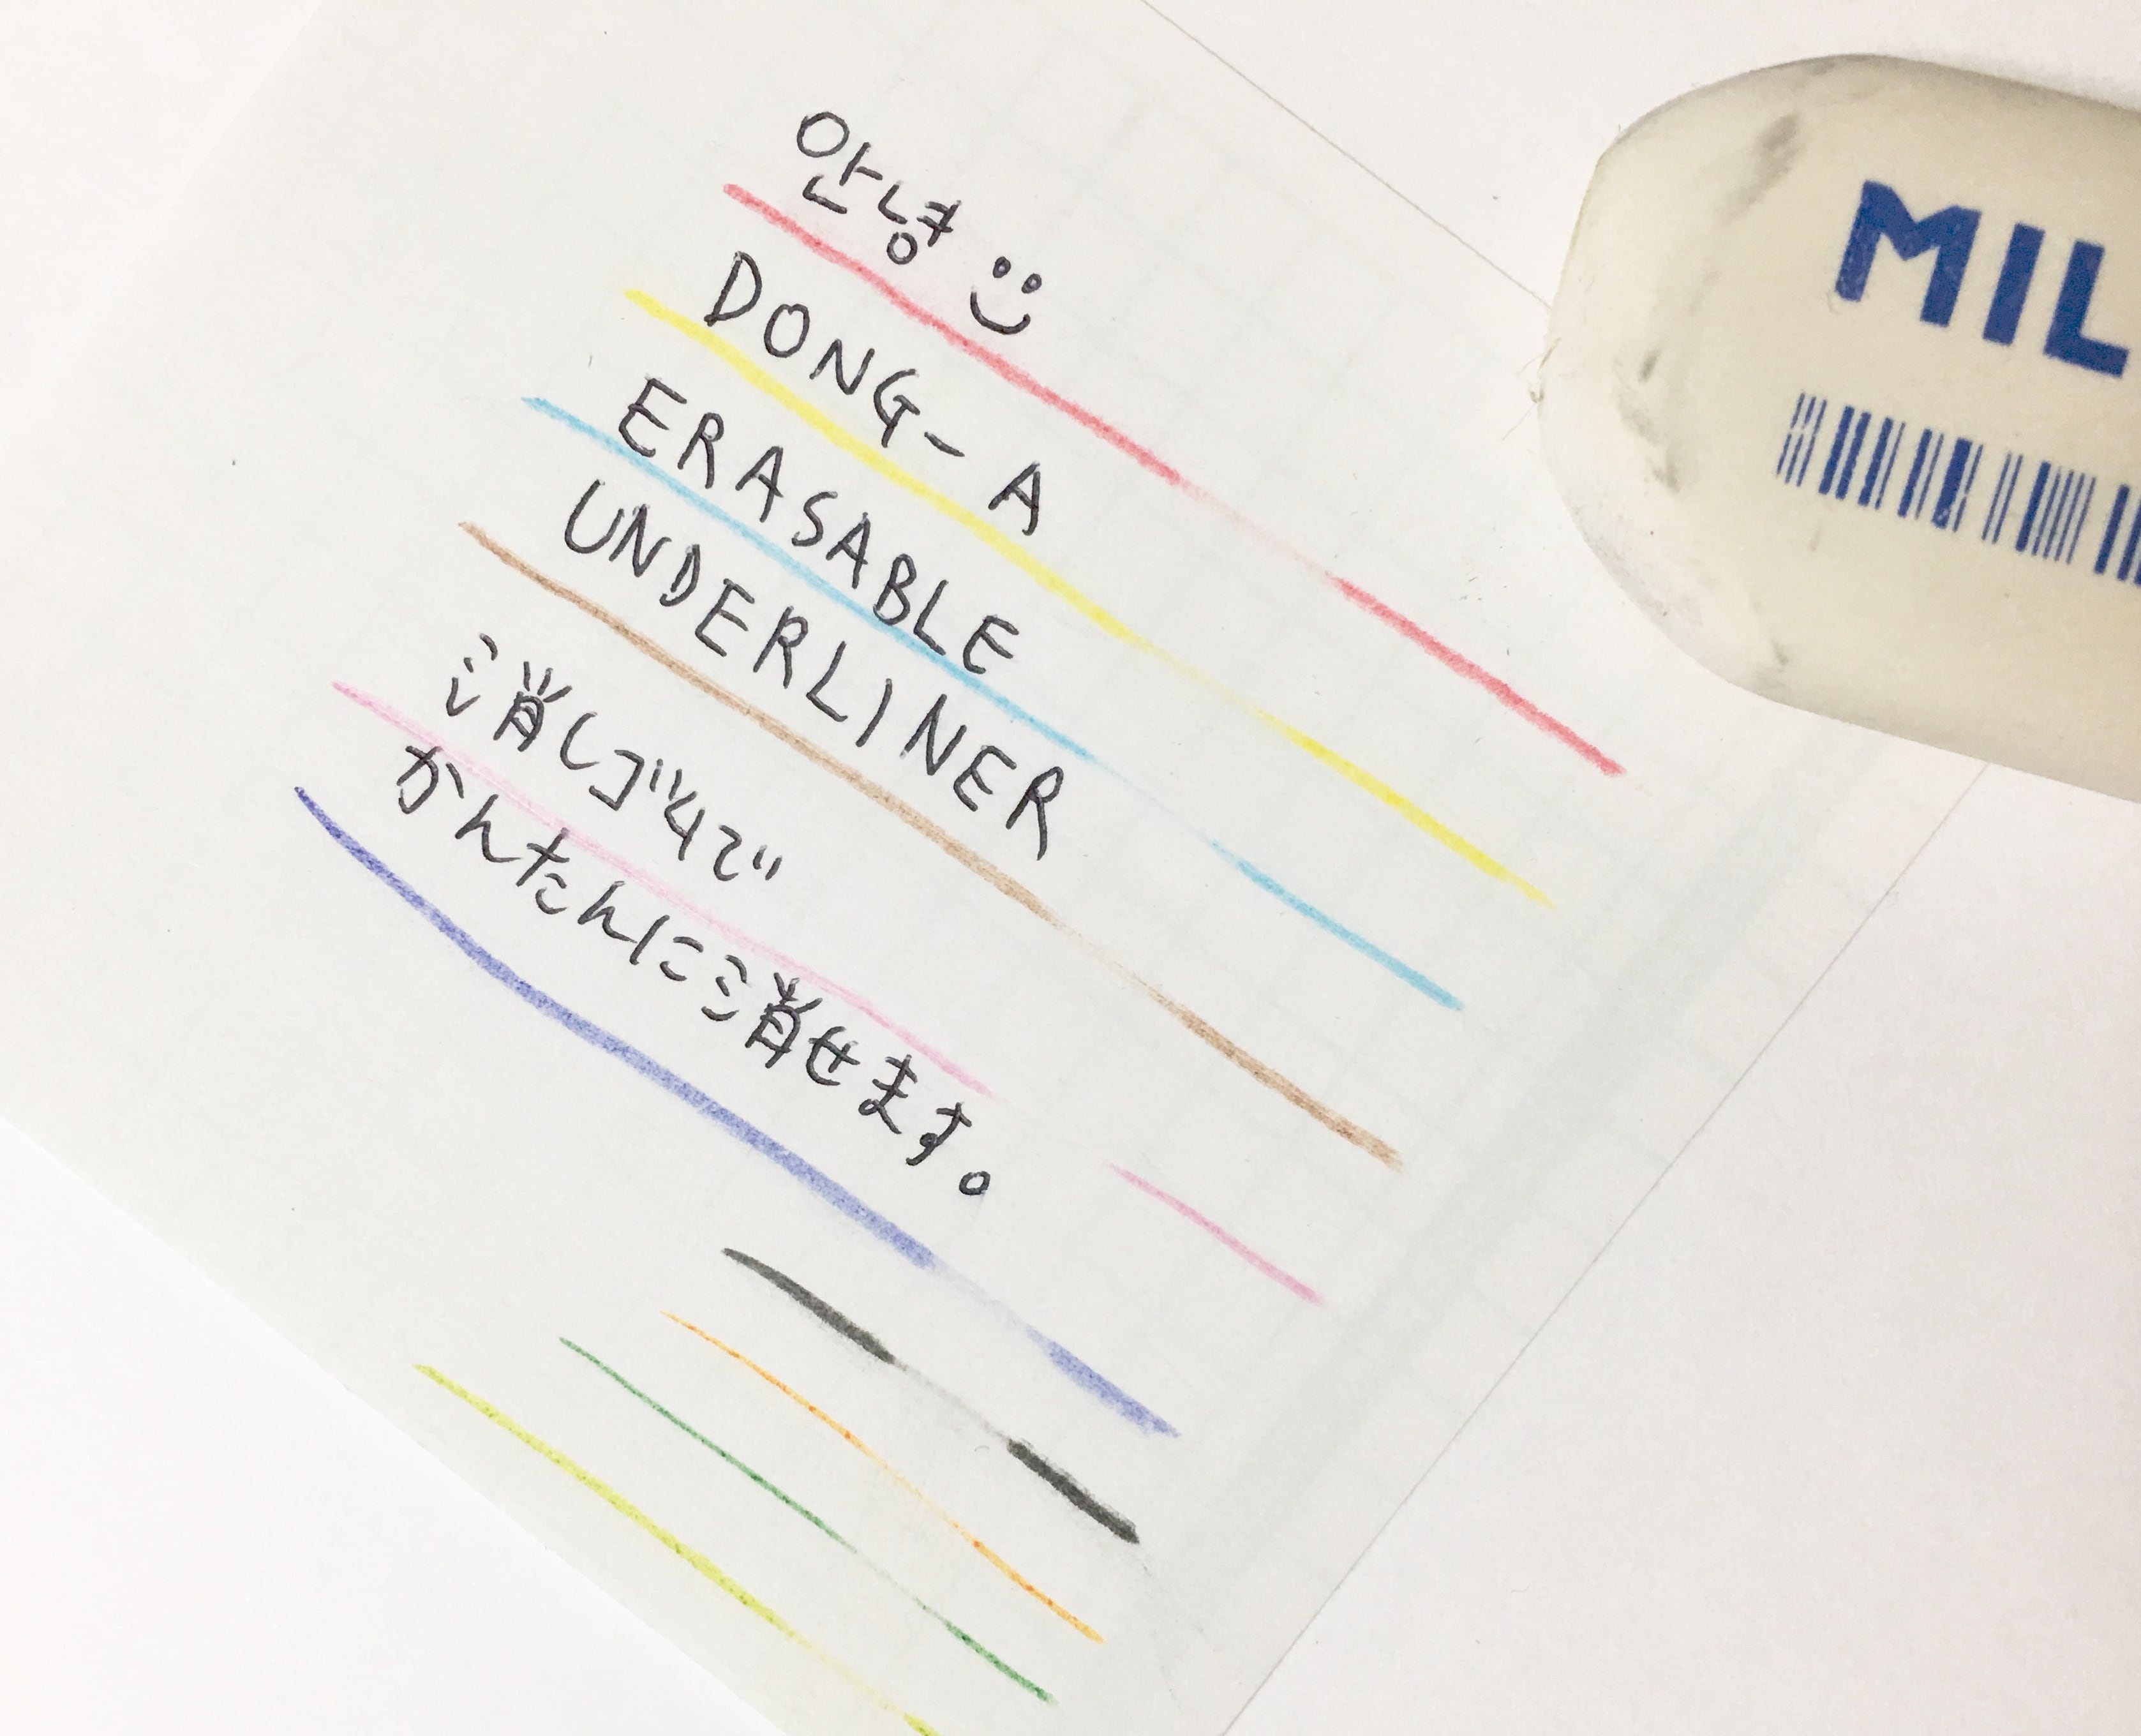 안녕
DONG-A
ERASABLE
UNDERLINER
消しゴムで
かんたんに消せます。
MIL